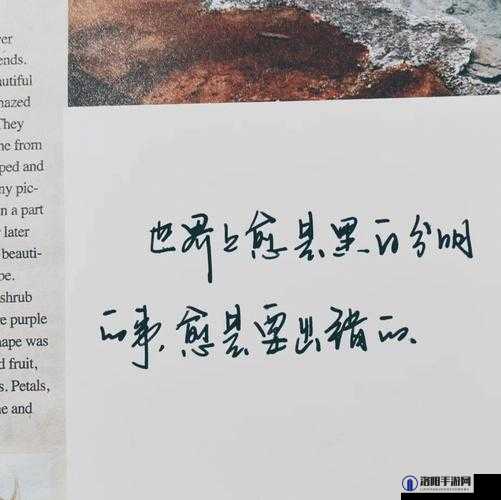 ver
ends.
autiful
mazed
They
ne from
ped and
ny pic-
n a part
later
beauti-
pe.
shrub
e purple
hape was
d fruit,
s. Petals,
ne and
世界上愈是黑白分明
的事，愈是要出错的.
洛阳手游网